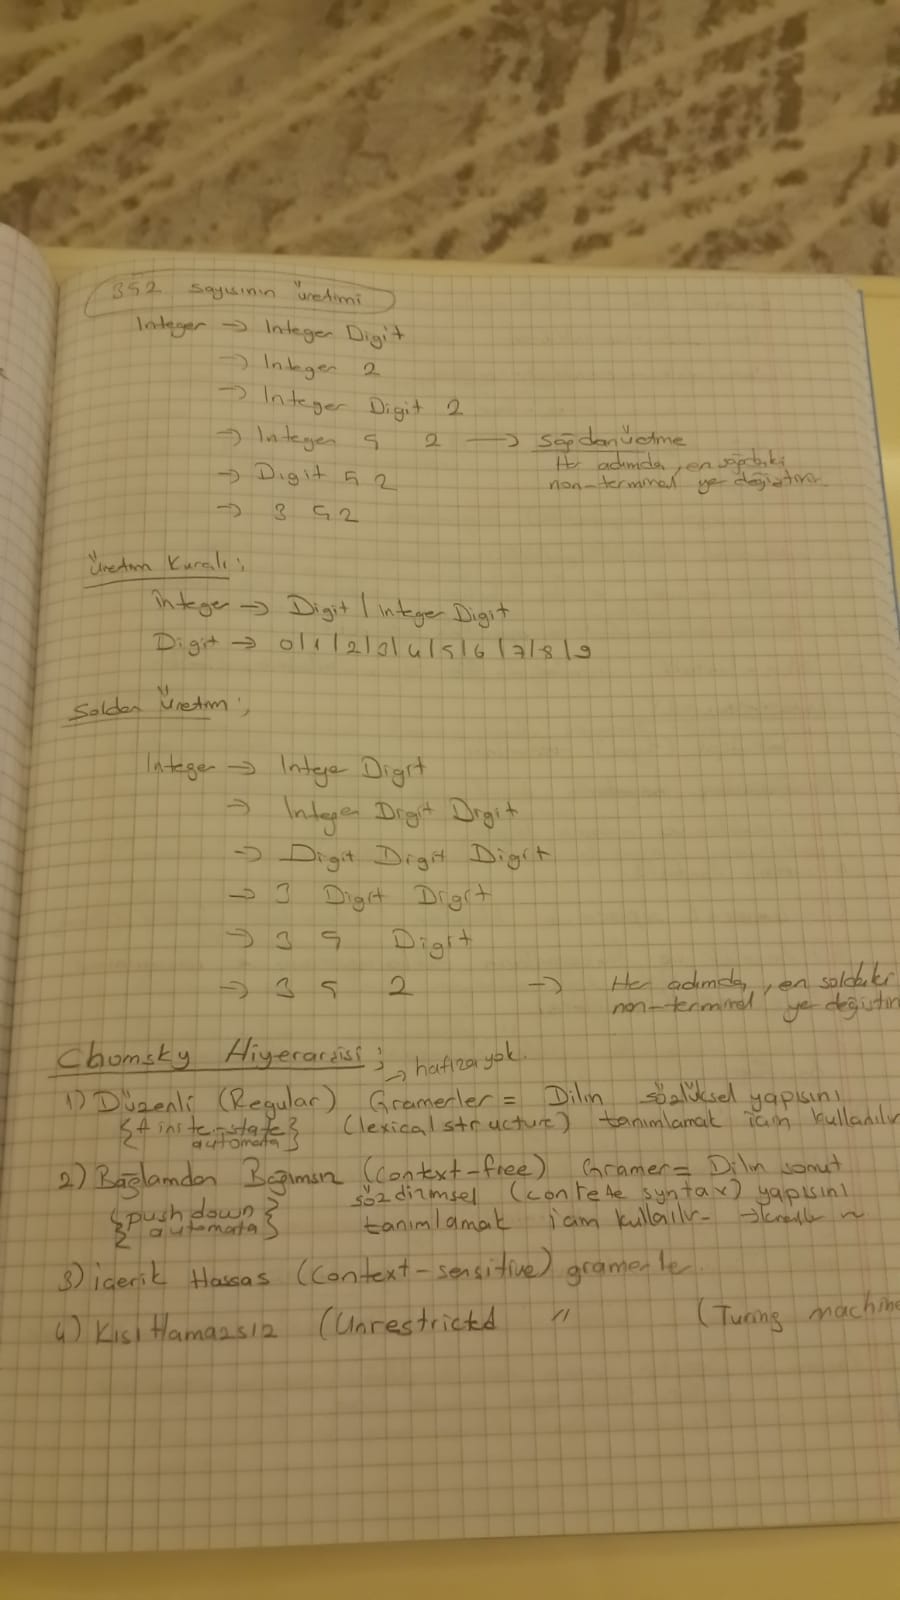 352 sayısının üretimi
Integer → Integer Digit
→ Integer 2
→ Integer Digit 2
→ Integer 5 2 → Sağdan Üretme
Her adımda, en sağdaki
non-terminal yer değiştirir.
→ Digit 5 2
→ 3 5 2
Üretim Kuralı;
integer → Digit / integer Digit
Digit → 0/1/2/3/4/5/6/7/8/9
Soldan Üretim;
Integer → Intege Digit
→ Integer Digit Digit
→ Digit Digit Digit
→ 3 Digit Digit
→ 3 5 Digit
→ 3 5 2 → Her adımda, en soldaki
non-terminal yer değiştirir
Chomsky Hiyerarşisi; → hafıza yok.
1) Düzenli (Regular) Gramerler = Dilin sözlüksel yapısını
(lexical structure) tanımlamak için kullanılır
automata}
2) Bağlamdan Bağımsız (Context-free) Gramer = Dilin somut
sözdizimsel (conrete syntax) yapısını
{push down
automata}
tanımlamak için kullanılır
3) içerik Hassas (Context-sensitive) gramerle
4) Kısıtlamasız (Unrestrictd " (Turing machine